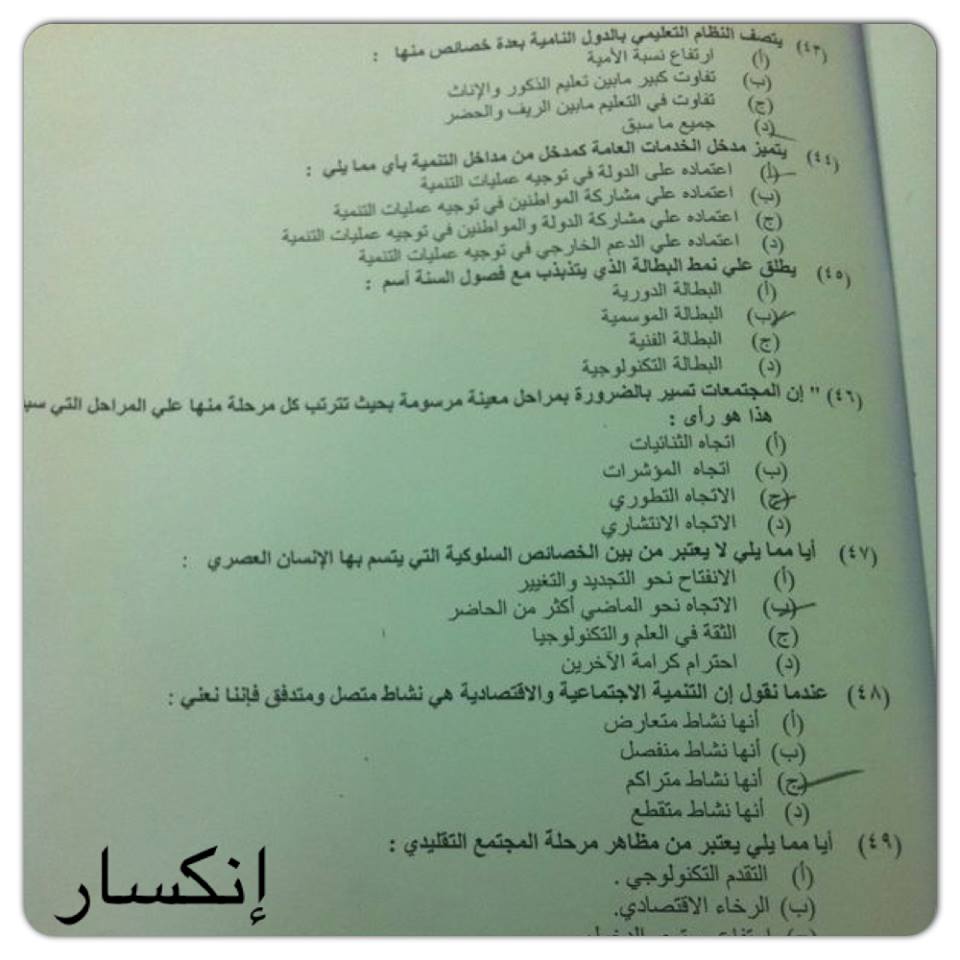 (٤٣) يتصف النظام التعليمي بالدول النامية بعدة خصائص منها :
(أ) ارتفاع نسبة الأمية
(ب) تفاوت كبير مابين تعليم الذكور والإناث
(ج) تفاوت في التعليم مابين الريف والحضر
(د) جميع ما سبق
(٤٤) يتميز مدخل الخدمات العامة كمدخل من مداخل التنمية بأي مما يلي :
(أ) اعتماده على الدولة في توجيه عمليات التنمية
(ب) اعتماده علي مشاركة المواطنين في توجيه عمليات التنمية
(ج) اعتماده علي مشاركة الدولة والمواطنين في توجيه عمليات التنمية
(د) اعتماده علي الدعم الخارجي في توجيه عمليات التنمية
(٤٥) يطلق علي نمط البطالة الذي يتذبذب مع فصول السنة أسم :
(أ) البطالة الدورية
(ب) البطالة الموسمية
(ج) البطالة الفنية
(د) البطالة التكنولوجية
(٤٦) " إن المجتمعات تسير بالضرورة بمراحل معينة مرسومة بحيث تترتب كل مرحلة منها علي المراحل التي
هذا هو رأى :
(أ) اتجاه الثنائيات
(ب) اتجاه المؤشرات
(ج) الاتجاه التطوري
(د) الاتجاه الانتشاري
(٤٧) أيا مما يلي لا يعتبر من بين الخصائص السلوكية التي يتسم بها الإنسان العصري :
(أ) الانفتاح نحو التجديد والتغيير
(ب) الاتجاه نحو الماضي أكثر من الحاضر
(ج) الثقة في العلم والتكنولوجيا
(د) احترام كرامة الآخرين
(٤٨) عندما نقول إن التنمية الاجتماعية والاقتصادية هي نشاط متصل ومتدفق فإننا نعني :
(أ) أنها نشاط متعارض
(ب) أنها نشاط منفصل
(ج) أنها نشاط متراكم
(د) أنها نشاط متقطع
(٤٩) أيا مما يلي يعتبر من مظاهر مرحلة المجتمع التقليدي :
(أ) التقدم التكنولوجي .
(ب) الرخاء الاقتصادي.
إنكسار